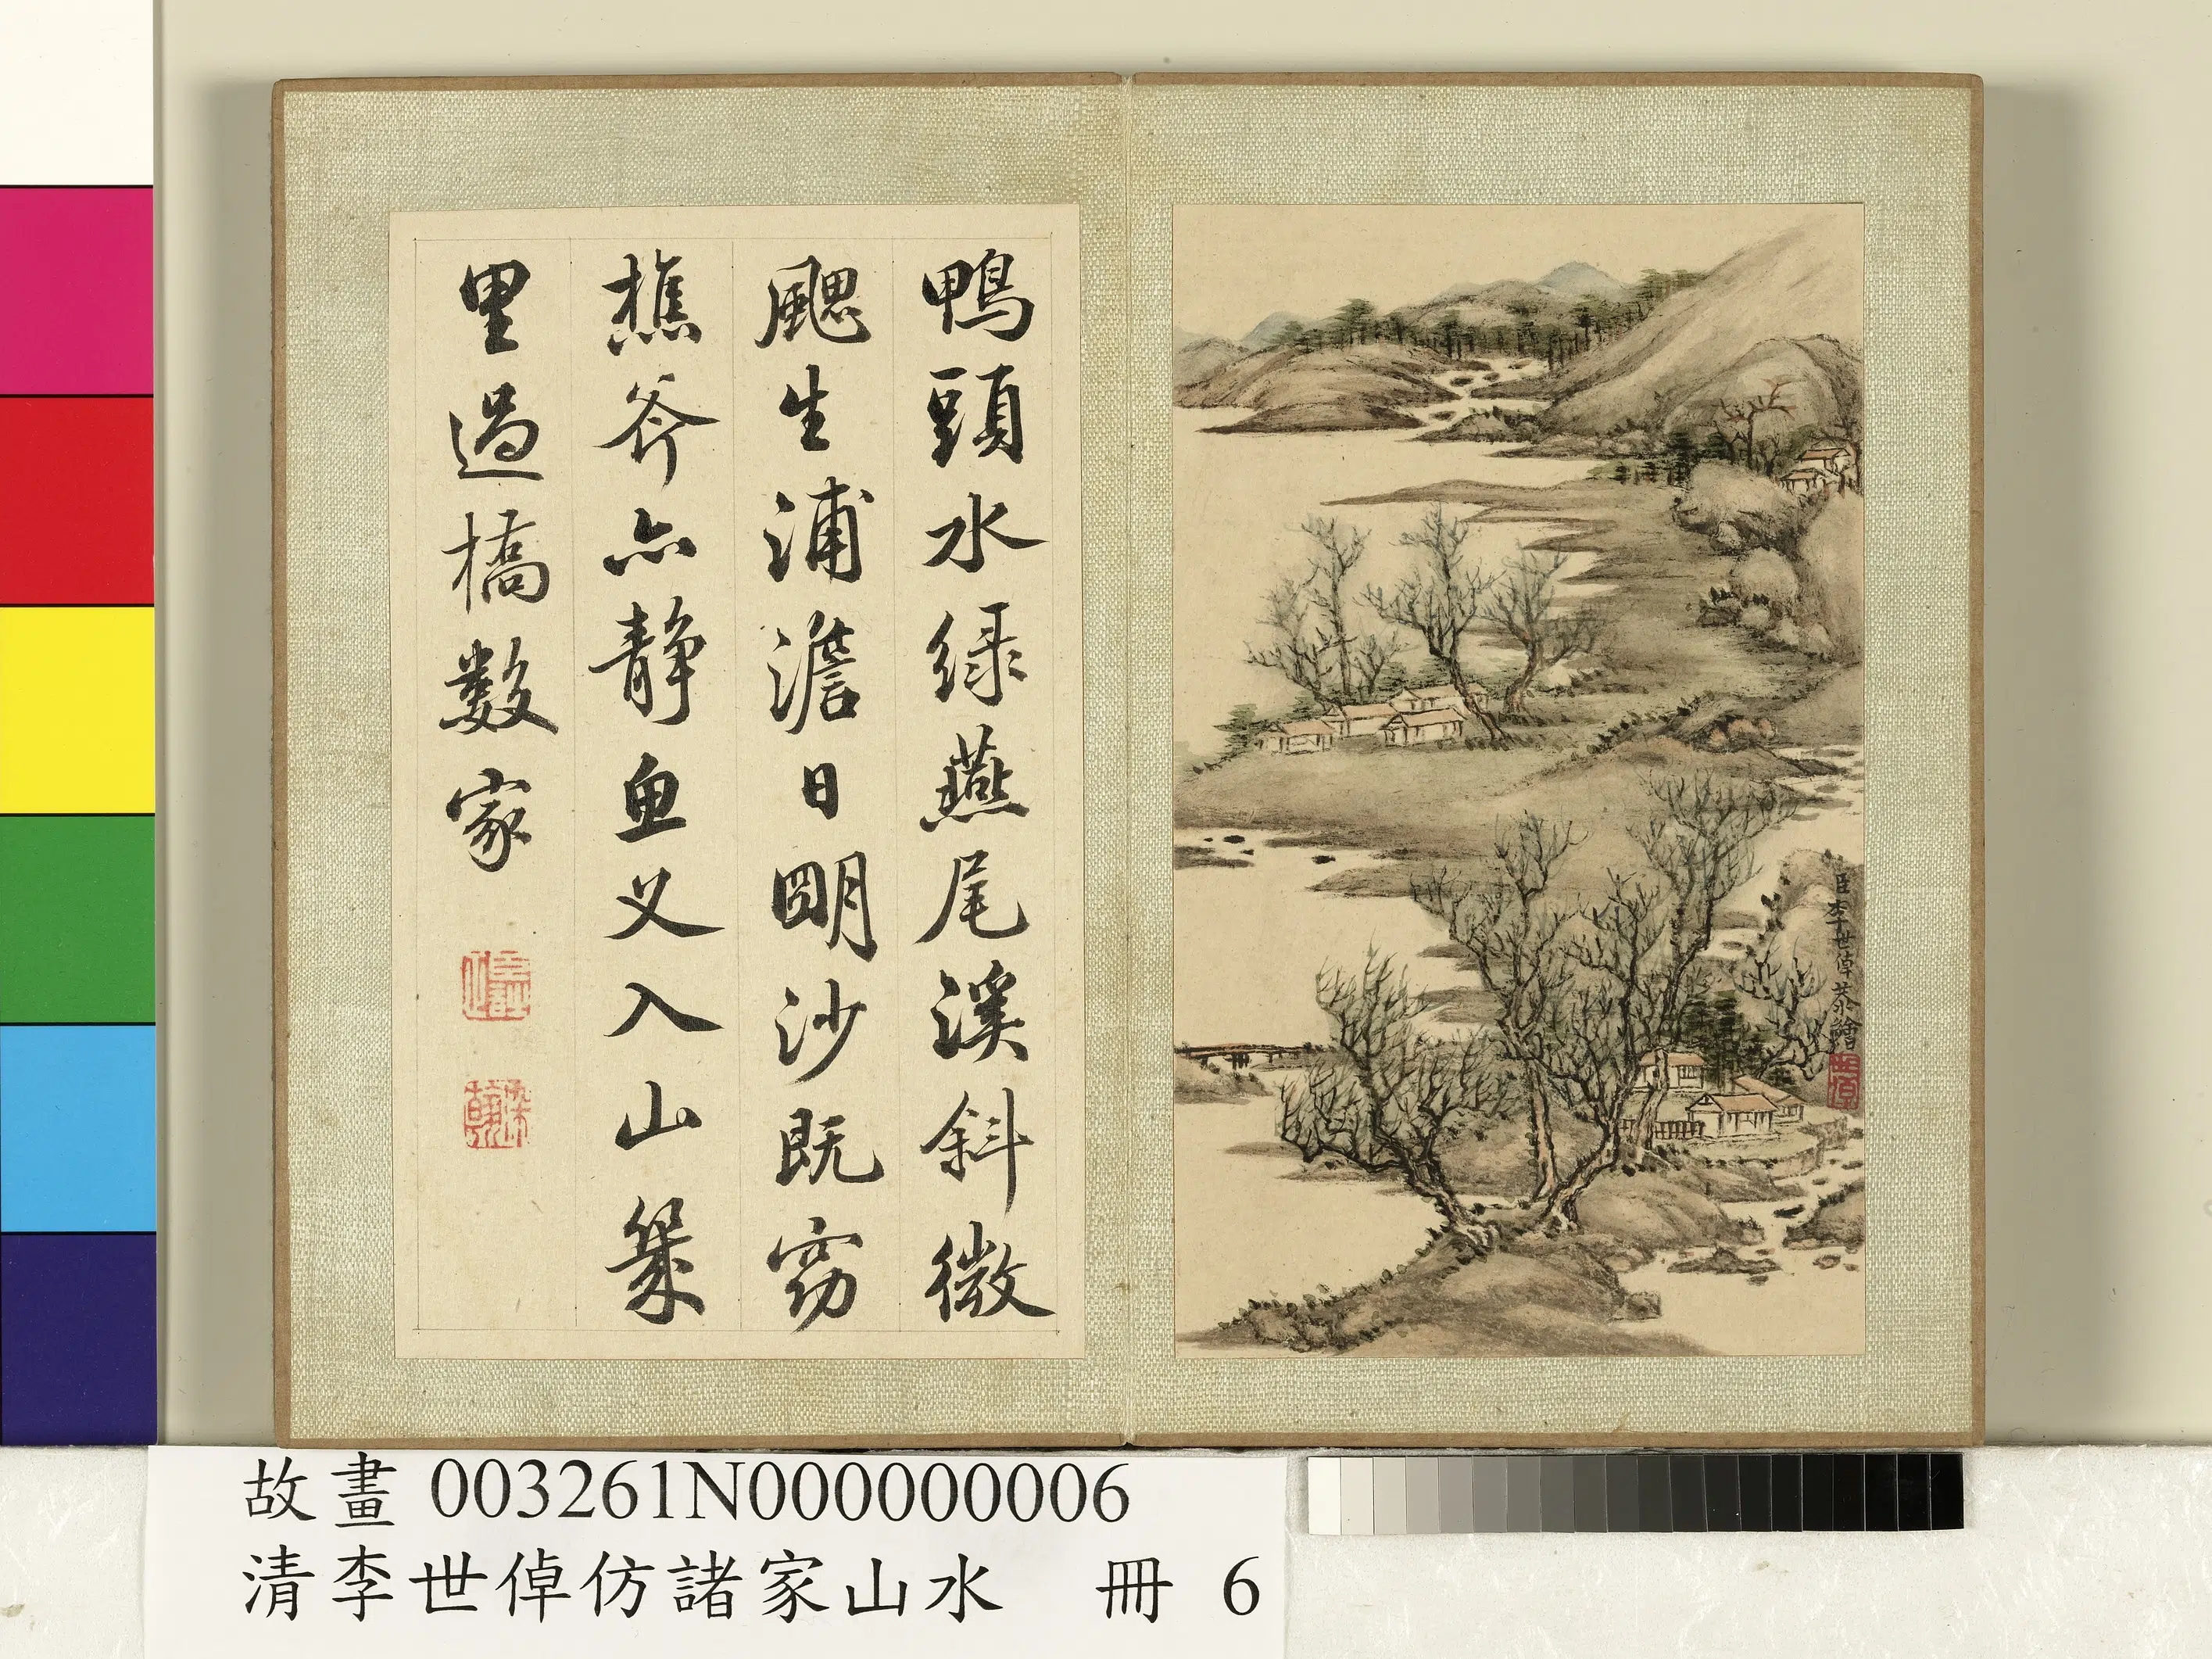 臣李世倬恭繪
鴨頭水緑燕尾溪斜微
颸生浦澹日朙沙既窈
樵斧亦静魚叉入山幾
里過橋數家
故畫 003261N000000006
清李世倬仿諸家山水 冊 6